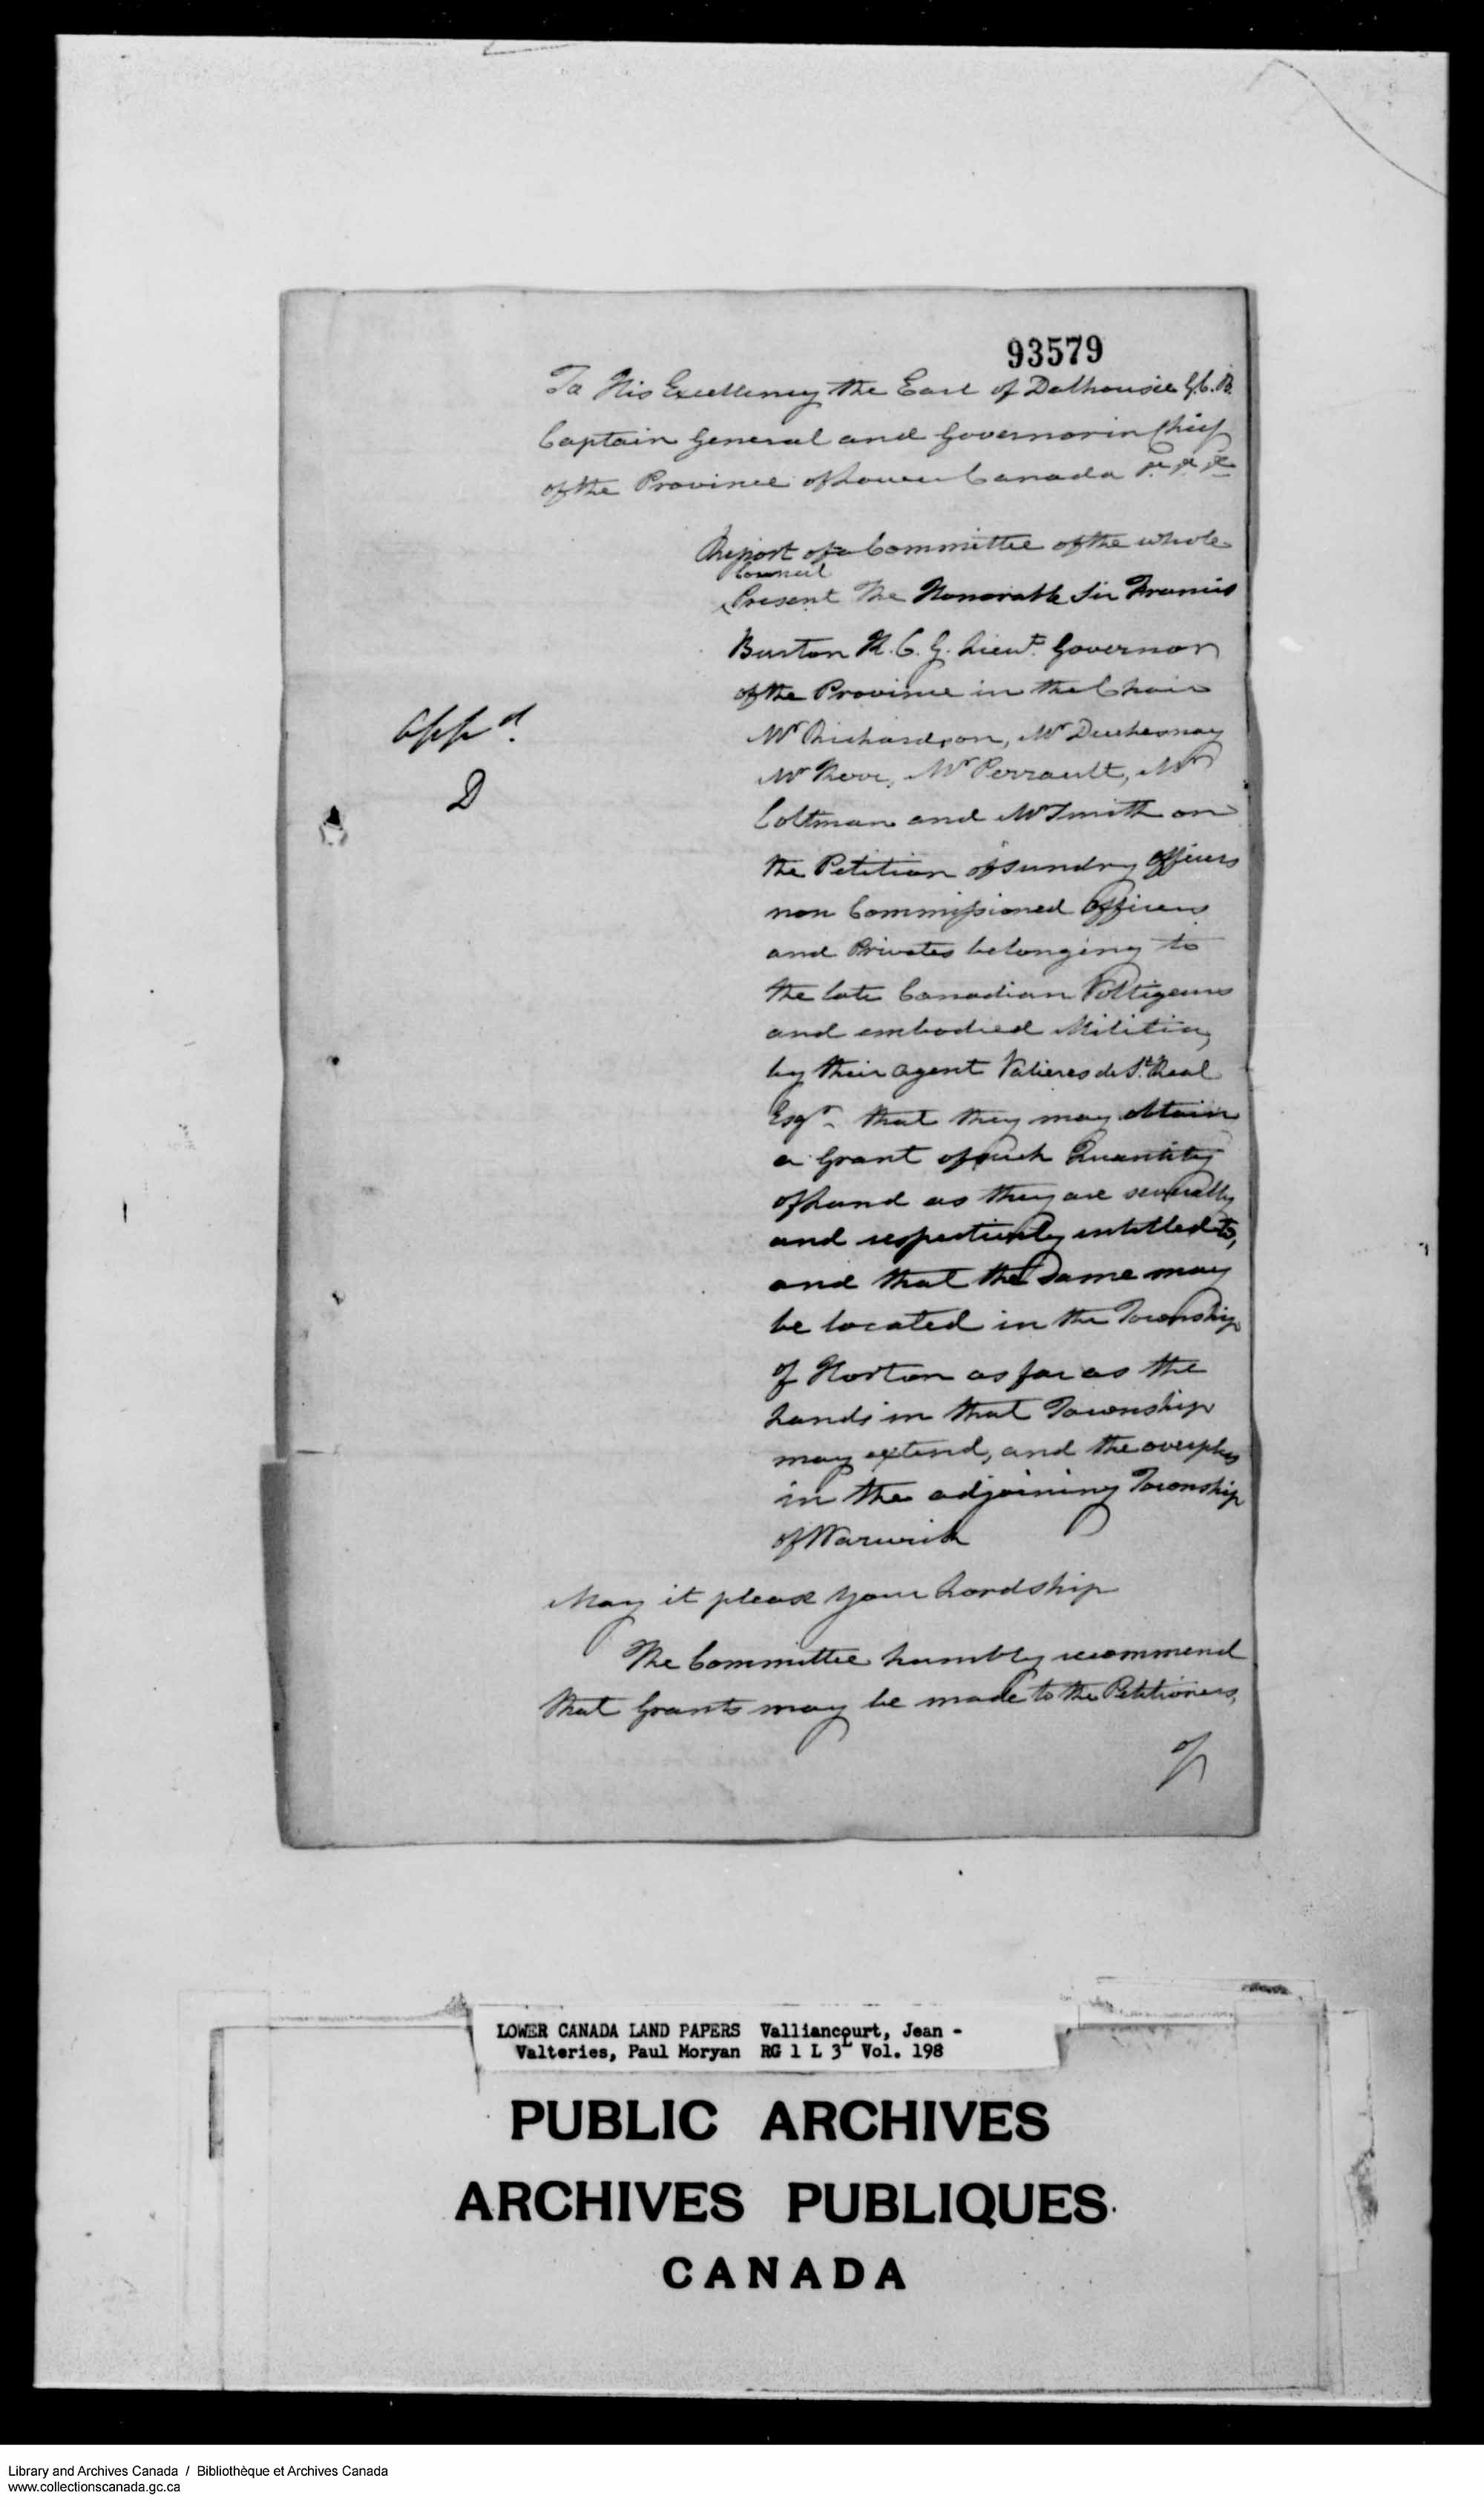 93579
To His Excellency the Earl of Dalhousie G.C.B.
Captain General and Governor in Chief
of the Province of Lower Canada &c &c &c
Report of a Committee of the whole
Council
Present The Honorable Sir Francis
Burton K.C.G. Lieut. Governor
of the Province in the Chair
Mr Richardson, Mr Duchesnay
Mr Kerr, Mr Perrault, Mr
Coltman and Mr Smith on
the Petition of sundry Officers
non Commissioned Officers
and Privates belonging to
the late Canadian Voltigeurs
and embodied Militia,
by their agent Valieres de St. Real
Esqr. that they may obtain
a Grant of such Quantity
of Land as they are severally
and respectively entitled to,
and that the Same may
be located in the Township
of Horton as far as the
Lands in that Township
may extend, and the overplus
in the adjoining Township
of Warwick
Appd.
D
May it please Your Lordship
The Committee humbly recommend
that Grants may be made to the Petitioners,
of
LOWER CANADA LAND PAPERS Valliancourt, Jean -
Valteries, Paul Moryan RG 1 L 3L Vol. 198
PUBLIC ARCHIVES
ARCHIVES PUBLIQUES
CANADA
Library and Archives Canada / Bibliothèque et Archives Canada
www.collectionscanada.gc.ca